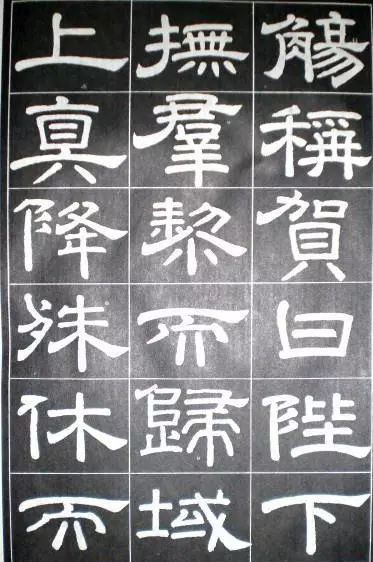 觴稱賀曰陛下
撫羣黎而歸域
上真降殊休而